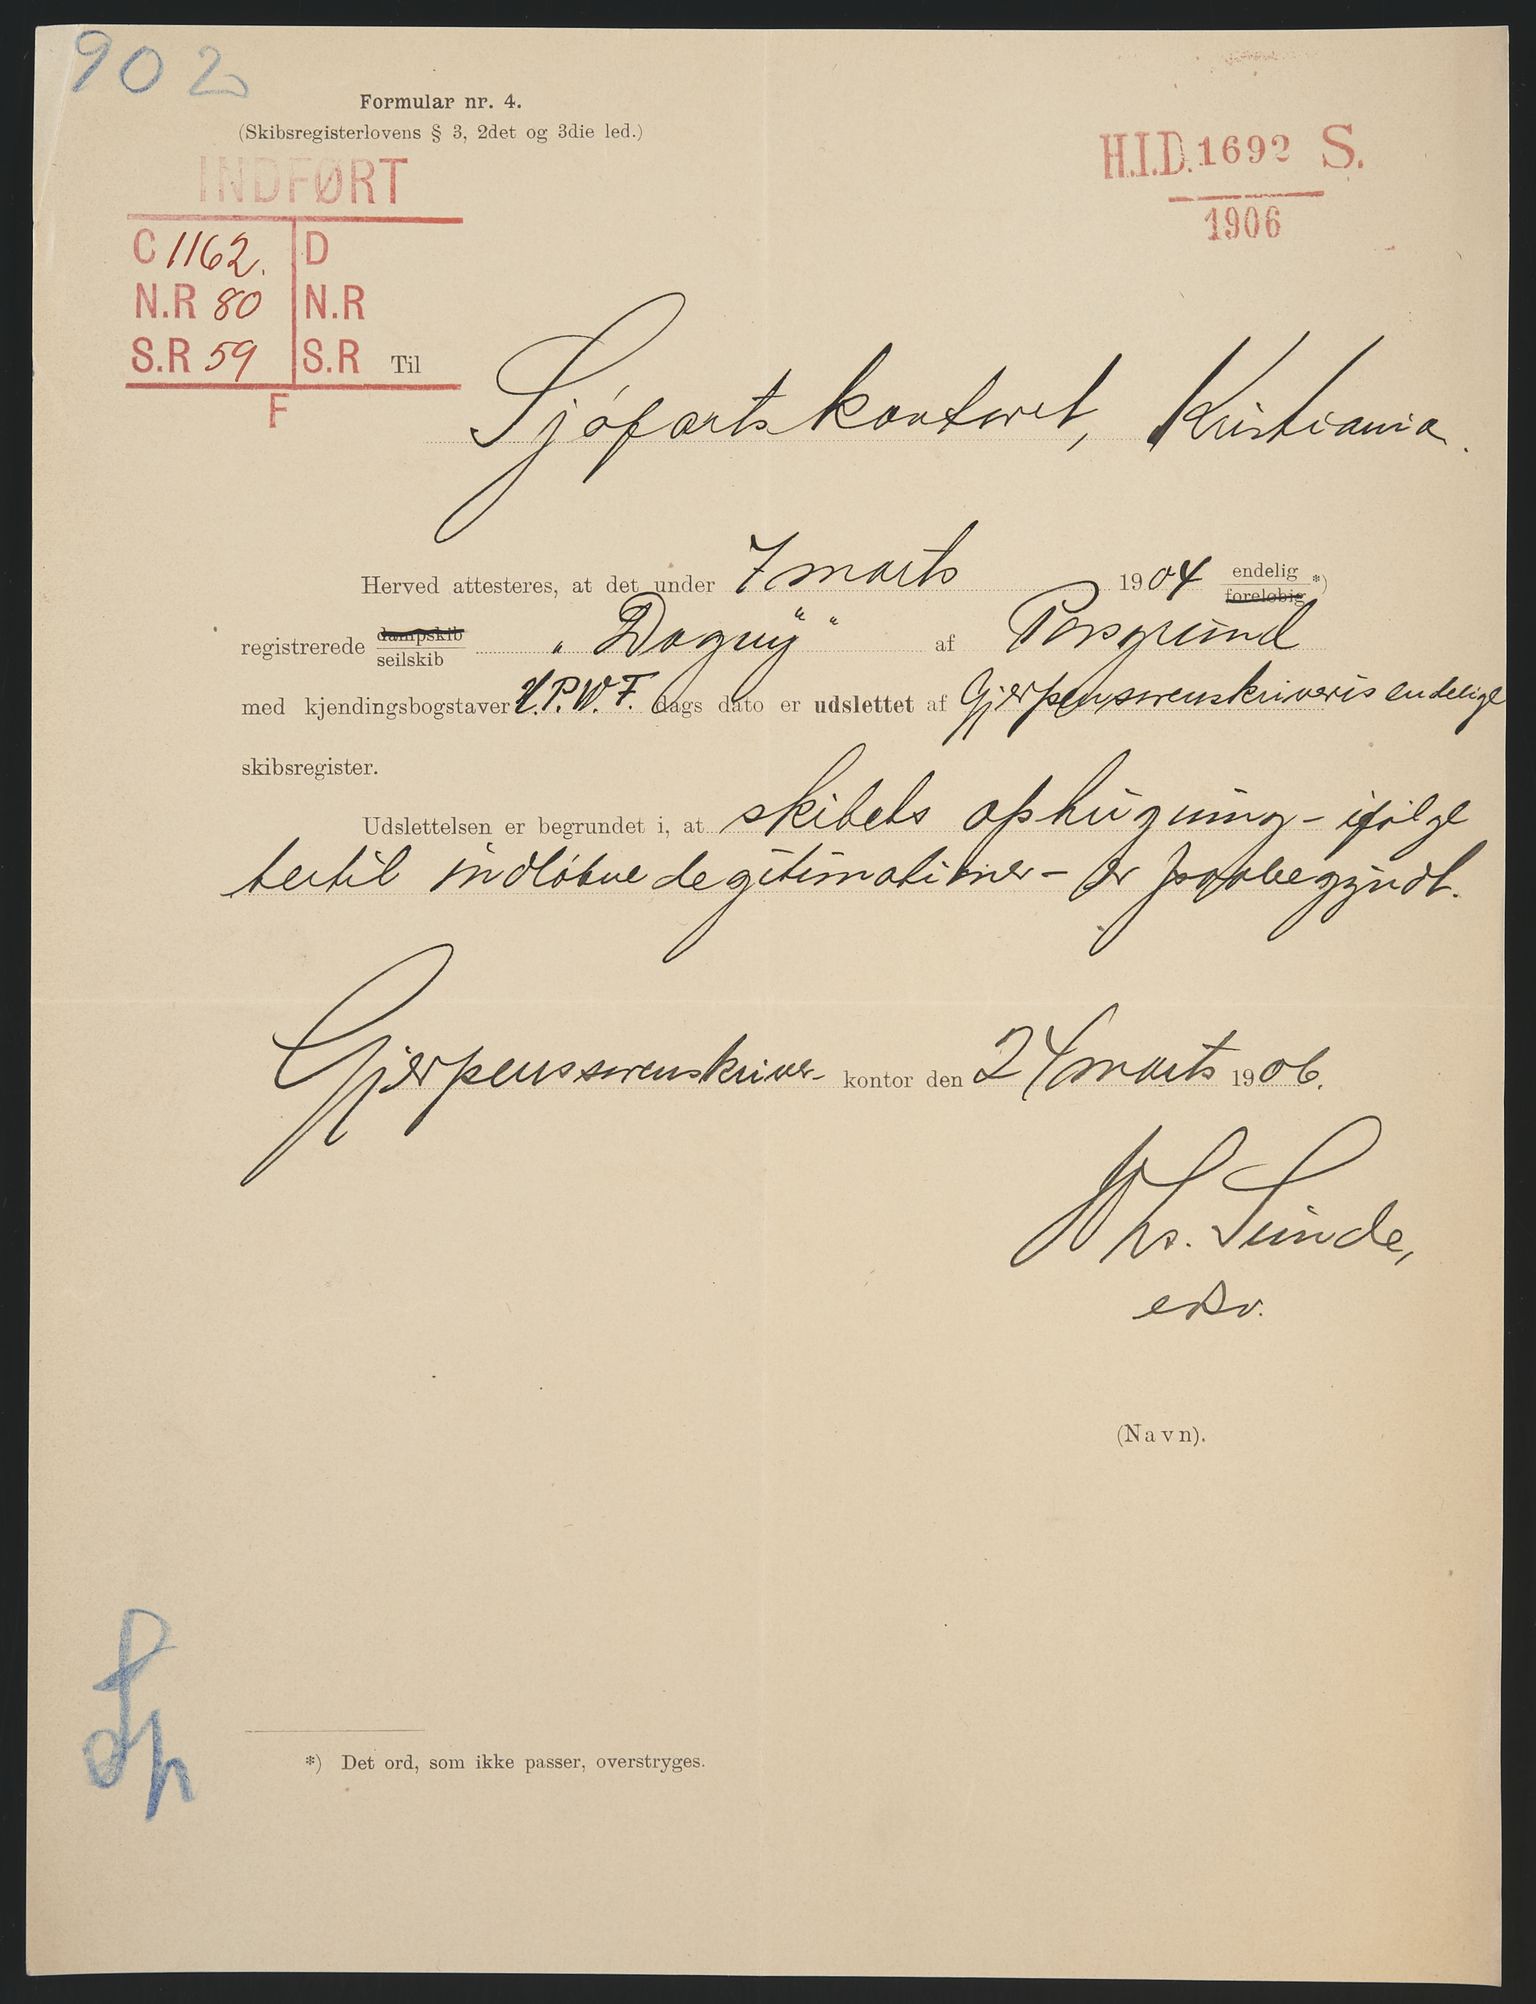 902
Formular nr. 4.
(Skibsregisterlovens § 3, 2det og 3die led.)
INDFØRT
H.I.D. 1692 S.
1906
C 1162. D
N.R 80 N.R
S.R 59 S.R
F
Til
Sjøfartskontoret, Kristiania.
Herved attesteres, at det under 7 marts 1904 endelig foreløbig *)
registrerede dampskib seilskib "Dagny" af Porsgrund
med kjendingsbogstaver H.P.W.F. dags dato er udslettet af Gjerpensorenskriveris endelige
skibsregister.
Udslettelsen er begrundet i, at skibets ophugning - ifølge
hertil indløbne legitimationer - er paabegyndt.
Gjerpens sorenskriver- kontor den 24 marts 1906.
Hs. Sunde,
(Navn).
*) Det ord, som ikke passer, overstryges.